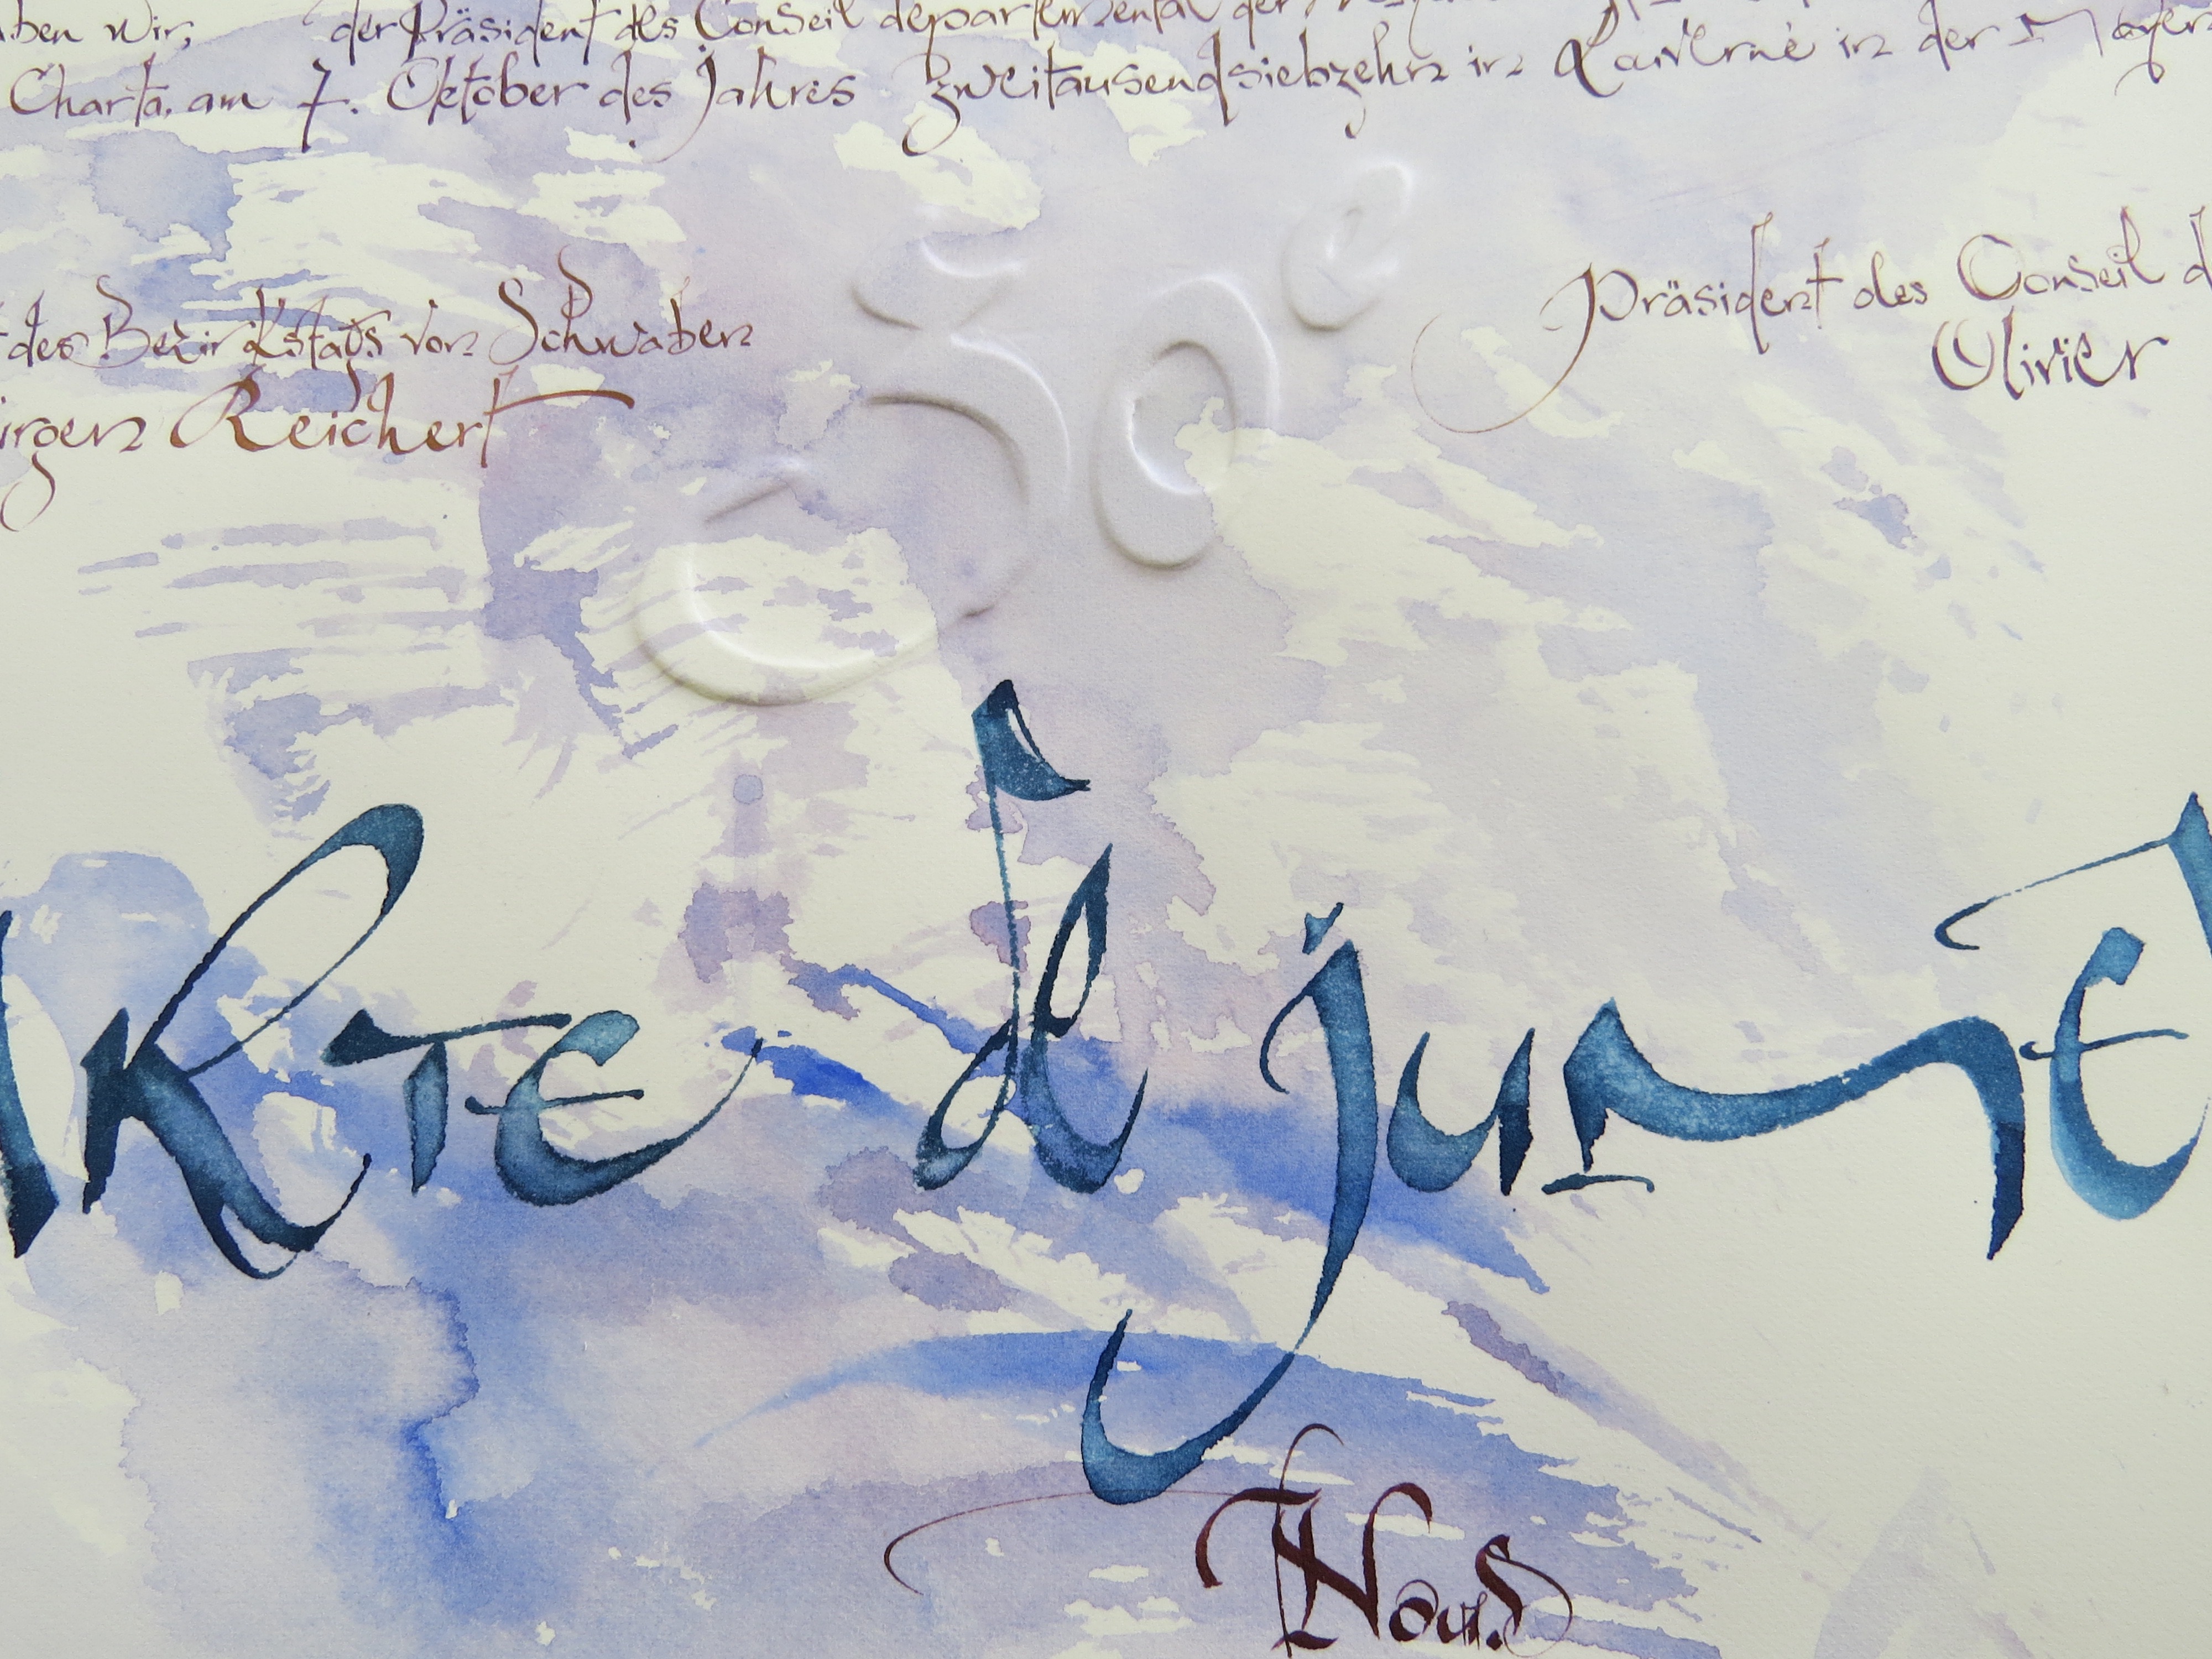 ben wir, der Präsident des Conseil départemental der
Charta, am 7. Oktober des Jahres zweitausendsiebzehn in Laverne in der Mayen
30e
des Bezirkstags von Schwaben
Präsident des Conseil d
ürgen Reichert
Olivier
RTE de jume
Nous